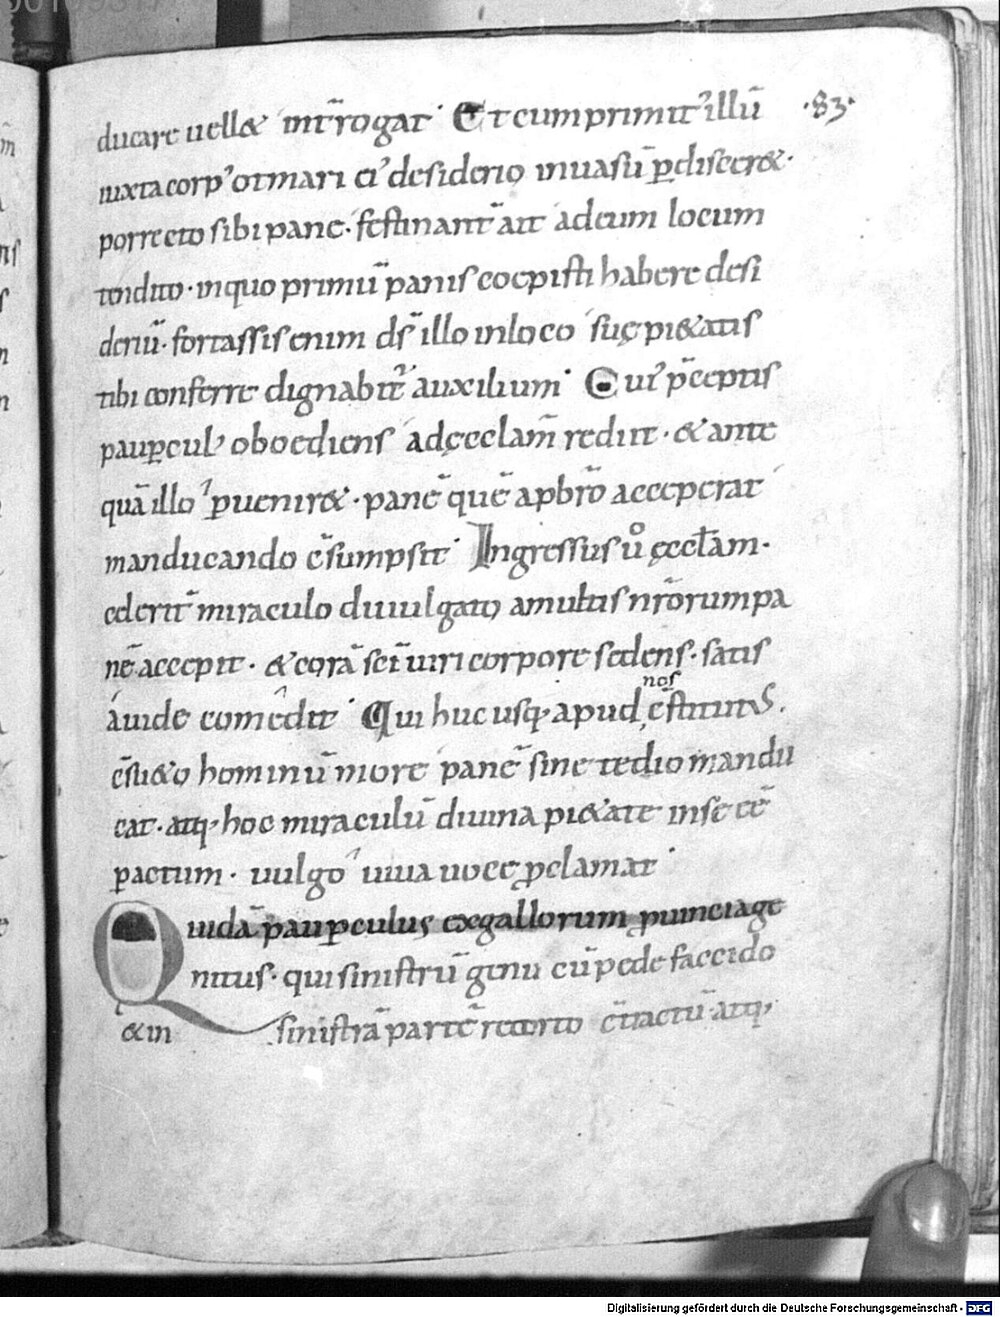 ducare uell& int̄rogat· Et cum primit᷒ illū ·83·
iuxta corp᷒ ormari ei᷒ desiderio inuasū ꝑdisceret&·
porrecto sibi pane· festinant̄ ait ad eum locum
tendito· in quo primū panis coepisti habere desi
deriū· fortassis enim d̄s illo in loco suę pi&atis
tibi conferre dignabit᷒ auxilium· Cui᷒ p̄ceptis
pauꝑcul᷒ oboediens ad ęcclam̄ rediit· & ante
quā illo ꝑuenir&· panē quē a pbr̄o acceperat
manducando c̄sumpsit· Ingressus ů ęccl̄am·
ederit̄ miraculo diuulgato a multis nr̄orum pa
nē accepit· & corā sc̄i uiri corpore sedens· satis
auide comedit· Qui huc usq; apud nos c̄stitutus·
c̄su&o hominū more panē sine tedio mandu
cat· atq; hoc miraculū diuina pi&ate in se eē
ꝑactum· uulgo uiua uoce ꝓclamat·
Quidā pauꝑculus ex gallorum ꝓuincia ge
nitus· qui sinistrū genu cū pede faccido
& in sinistrā partē retorto c̄tractū atq;
Digitalisierung gefördert durch die Deutsche Forschungsgemeinschaft - DFG